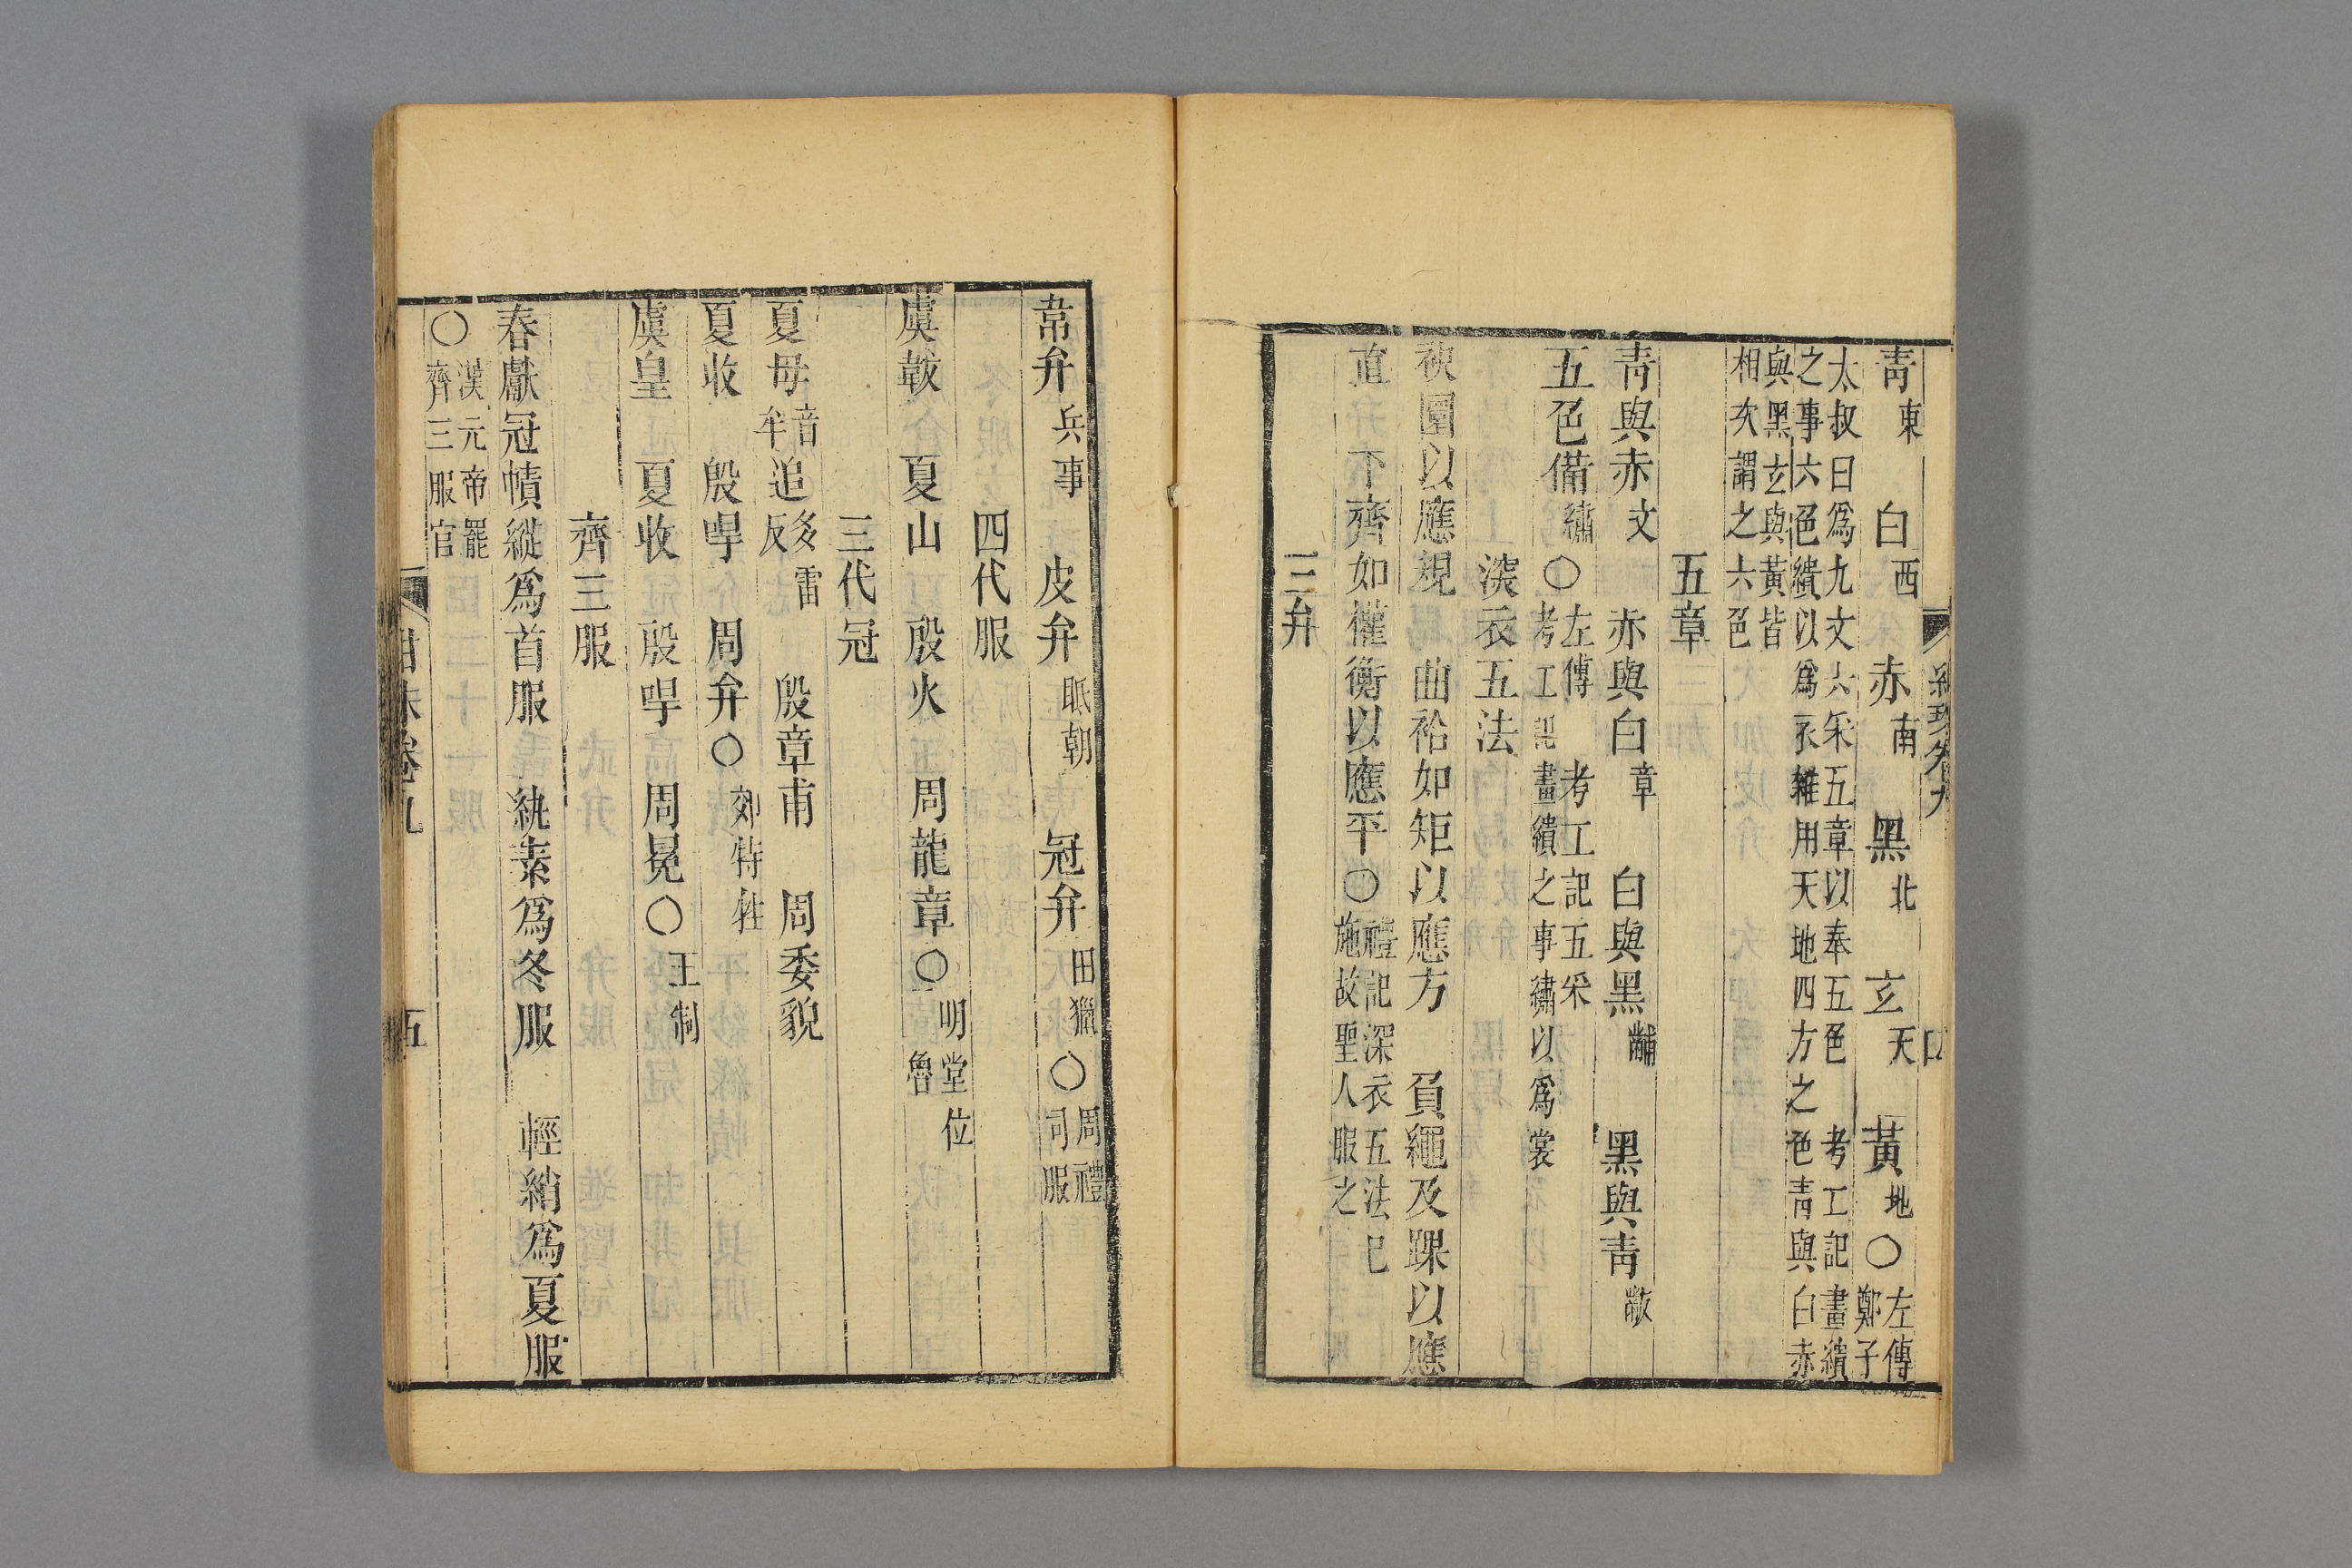 青東 白西 赤南 黑北 玄天 黃地○左傳鄭子
太叔曰爲九文六采五章以奉五色 考工記畫繢
之事六色繢以爲衣雜用天地四方之色青與白赤
與黑玄與黃皆
相次謂之六色
五章
青與赤文 赤與白章 白與黑黼 黑與青黻
五色備繡○左傳 考工記五采
考工記畫繢之事繡以爲裳
深衣五法
袂圜以應規 曲袷如矩以應方 負繩及踝以應
直 下齊如權衡以應平○禮記深衣五法已
施故聖人服之
三弁
韋弁兵事 皮弁眡朝 冠弁田獵○周禮
司服
四代服
虞韍 夏山 殷火 周龍章○明堂位
魯
三代冠
夏毋音牟追多雷反 殷章甫 周委貌
夏收 殷冔 周弁○郊特牲
虞皇 夏收 殷冔 周冕○王制
齊三服
春獻冠幘縰爲首服 紈素爲冬服 輕綃爲夏服
○漢元帝罷
齊三服官
卷九
五